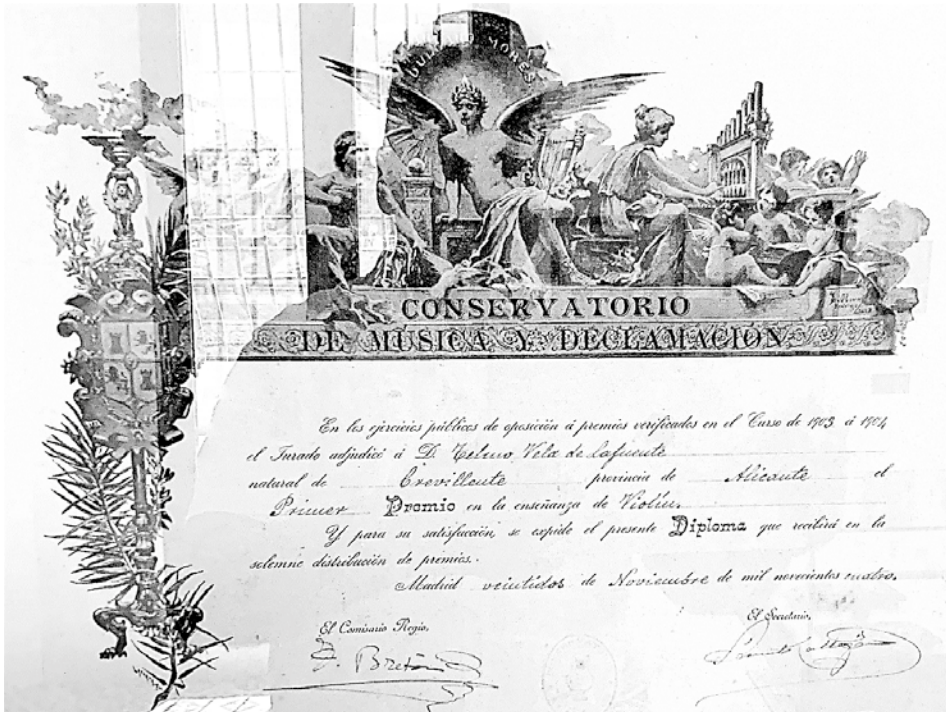 CONSERVATORIO
DE MÚSICA Y DECLAMACIÓN
En los ejercicios públicos de oposición á premios verificados en el Curso de 1903 á 1904
el Jurado adjudicó á D. Telmo Vela de Lafuente
natural de Crevillente provincia de Alicante el
Primer Premio en la enseñanza de Violín.
Y para su satisfacción, se expide el presente Diploma que recibirá en la
solemne distribución de premios.
Madrid veintidos de Noviembre de mil novecientos cuatro.
El Comisario Regio,
El Secretario,
T. Bretón